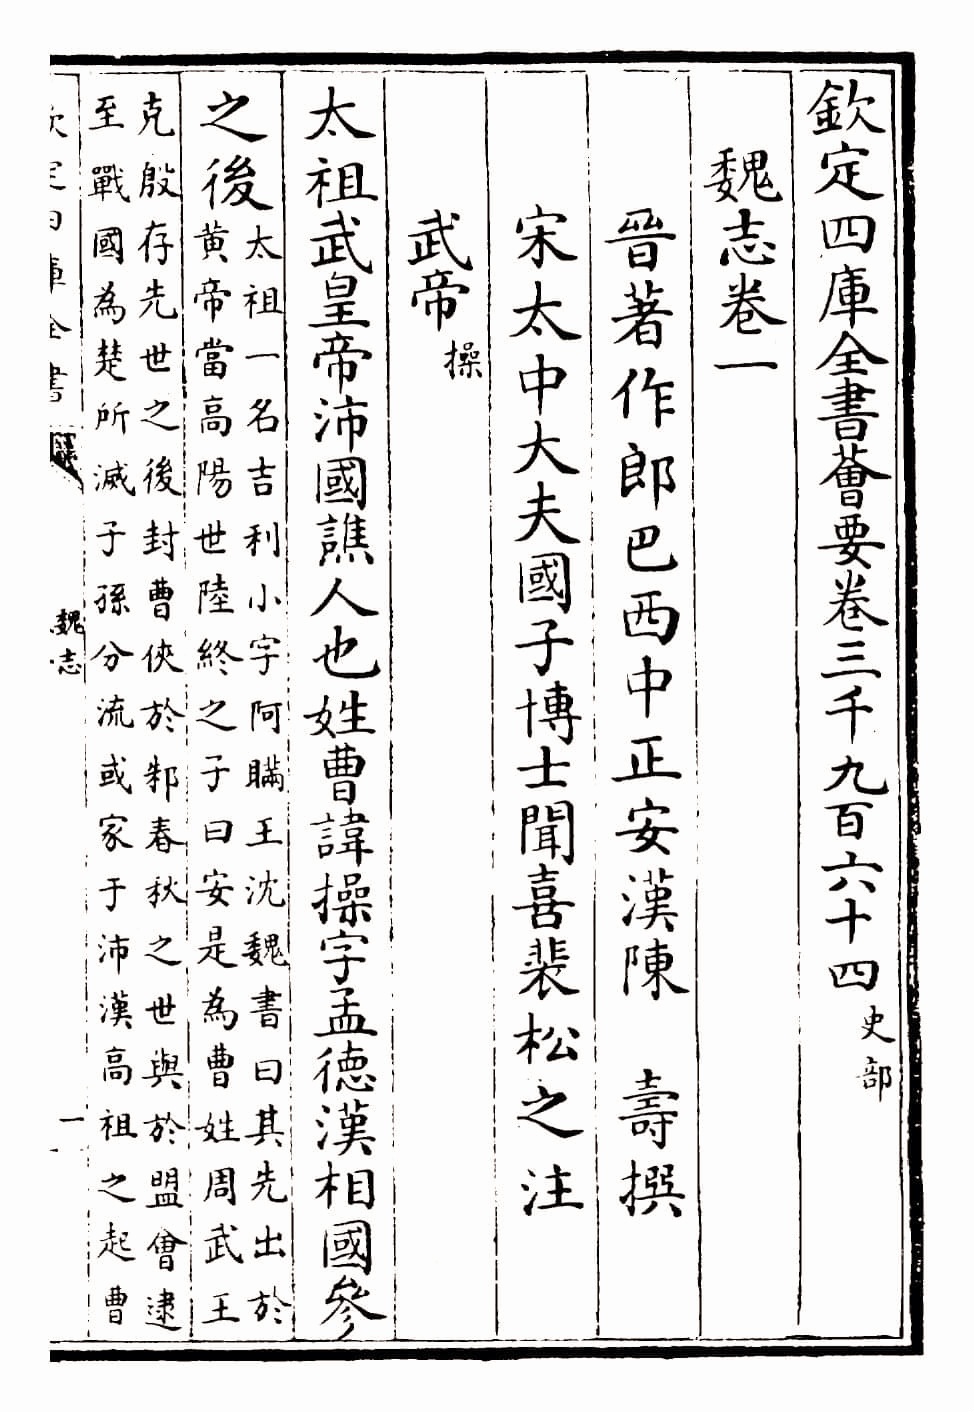 欽定四庫全書薈要卷三千九百六十四史部
魏志卷一
晉著作郎巴西中正安漢陳　壽撰
宋太中大夫國子博士聞喜裴松之注
武帝操
太祖武皇帝沛國譙人也姓曹諱操字孟德漢相國參
之後
太祖一名吉利小字阿瞞王沈魏書曰其先出於
黄帝當高陽世陸終之子曰安是為曹姓周武王
克殷存先世之後封曹俠於邾春秋之世與於盟㑹逮
至戰國為楚所滅子孫分流或家于沛漢高祖之起曹
欽定四庫全書
魏志
一